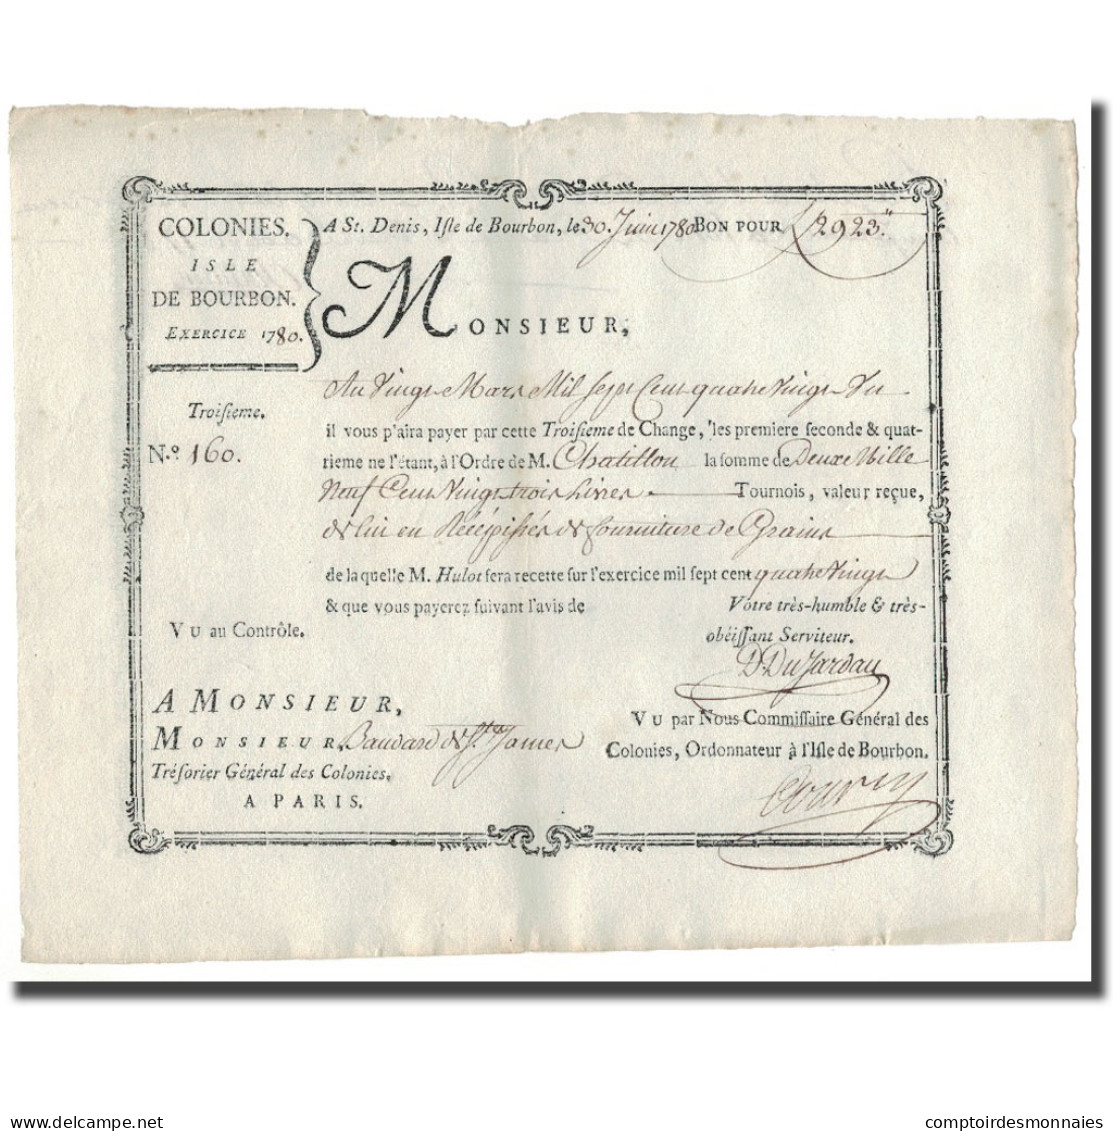 COLONIES.
ISLE
DE BOURBON.
EXERCICE 1780.
A St. Denis, Isle de Bourbon, le 30. Juin 1780 BON POUR 2923"
MONSIEUR,
Au Vingt Mars Mil Sept Cent quatre Vingt Un
Troisieme.
N.° 160.
il vous p'aira payer par cette Troisieme de Change, les premiere seconde & quat-
rieme ne l'étant, à l'Ordre de M. Chatillon la somme de Deux Mille
Neuf Cent Vingt trois Livres Tournois, valeur reçue,
de lui en Récépissés de fourniture de Grains
de laquelle M. Hulot fera recette sur l'exercice mil sept cent quatre Vingt
& que vous payerez suivant l'avis de
Votre très-humble & très-
obéissant Serviteur.
VU au Contrôle.
D. DuJardau
A MONSIEUR,
MONSIEUR, Baudard de St. James
Trésorier Général des Colonies.
A PARIS.
VU par Nous Commissaire Général des
Colonies, Ordonnateur à l'Isle de Bourbon.
comptoirdesmonnaies